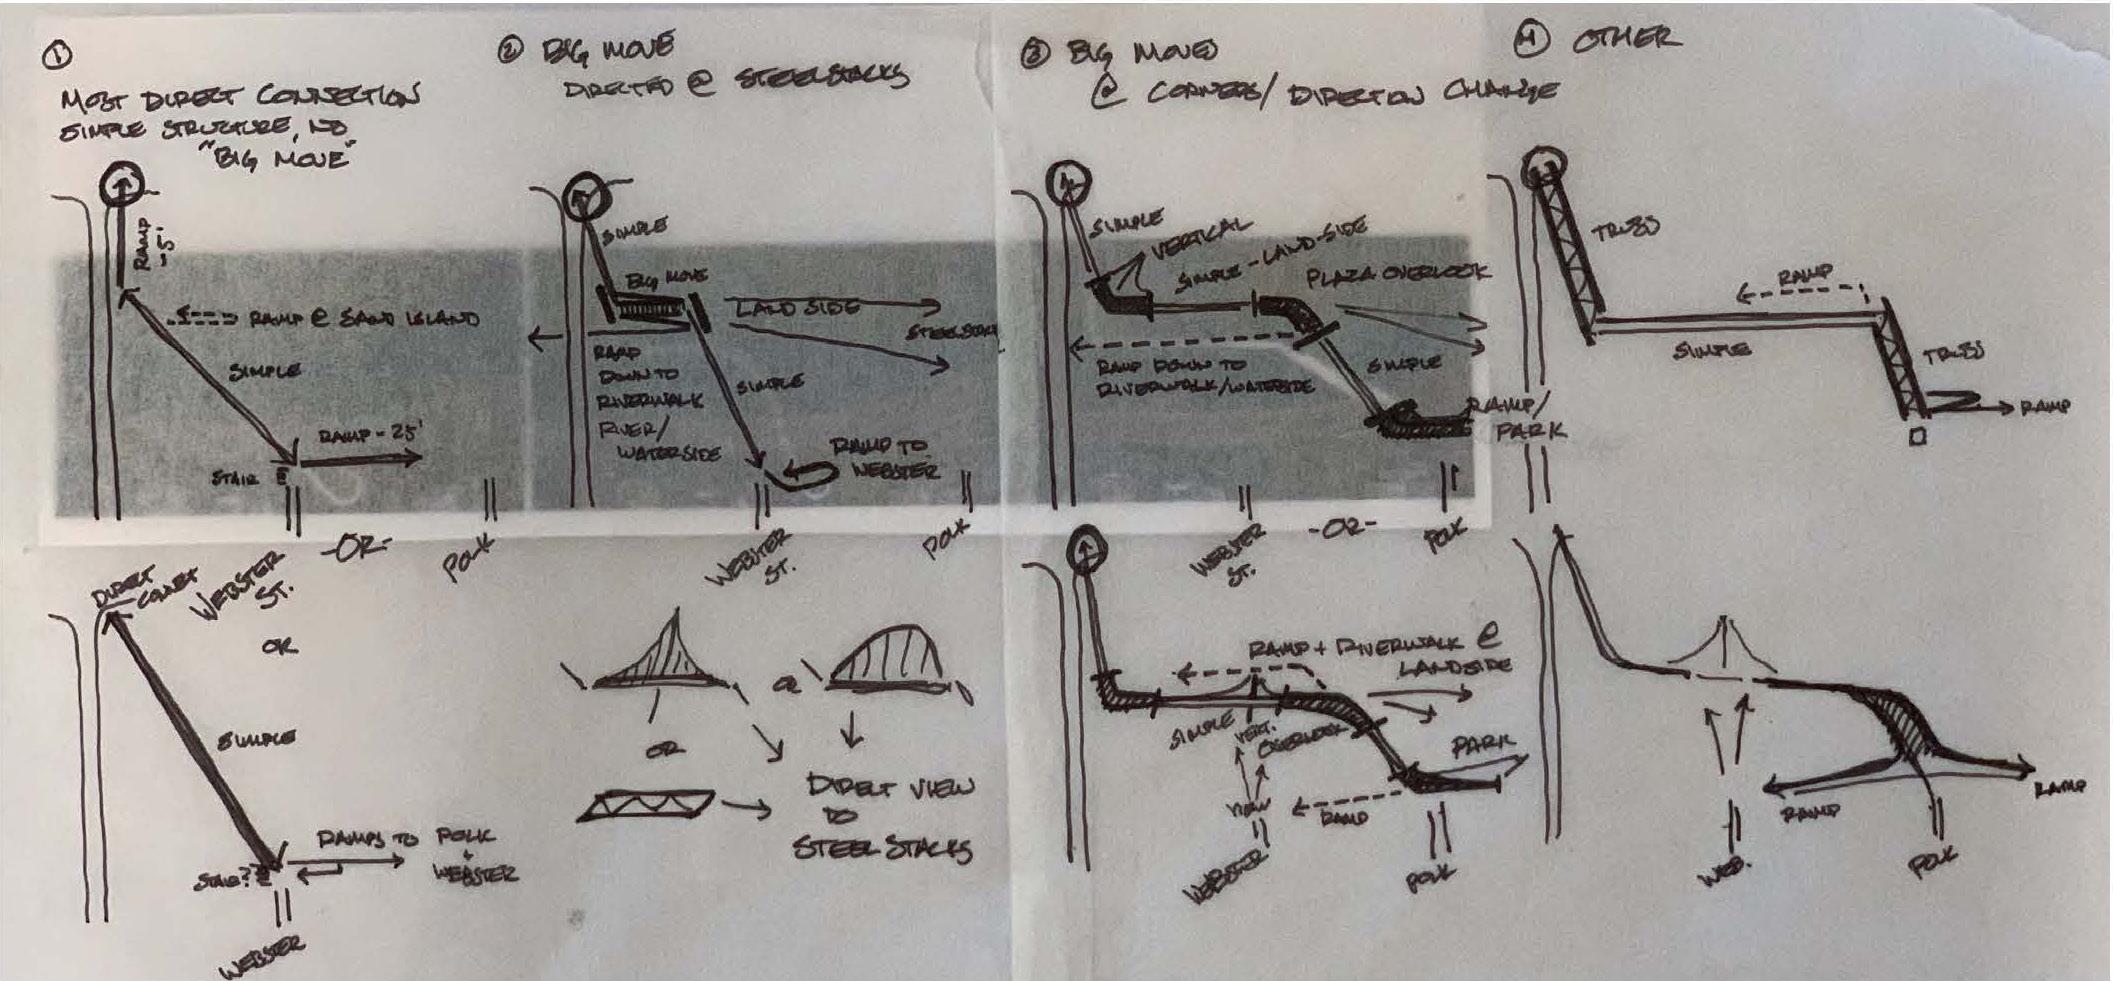 ①
MOST DIRECT CONNECTION
SIMPLE STRUCTURE, NO
"BIG MOVE"
RAMP
RAMP @ SAND ISLAND
SIMPLE
RAMP - 25'
STAIR
WEBSTER
ST.
POLK
-OR-
OR
DIRECT
SIMPLE
RAMPS TO POLK
+
WEBSTER
STAIR?
WEBSTER
② BIG MOVE
DIRECTED @ STEELSTACKS
SIMPLE
BIG MOVE
LAND SIDE
RAMP
DOWN TO
RIVERWALK
RIVER/
WATERSIDE
SIMPLE
RAMP TO
WEBSTER
WEBSTER
ST.
POLK
OR
OR
DIRECT VIEW
TO
STEEL STACKS
③ BIG MOVES
@ CORNERS/ DIRECTION CHANGE
SIMPLE
VERTICAL
SIMPLE - LAND-SIDE
PLAZA OVERLOOK
RAMP DOWN TO
RIVERWALK/WATERSIDE
SIMPLE
RAMP/
PARK
WEBSTER
ST.
-OR-
POLK
RAMP + RIVERWALK @
LANDSIDE
SIMPLE
VERT.
OVERLOOK
PARK
VIEW
RAMP
WEBSTER
POLK
④ OTHER
TRUSS
RAMP
SIMPLE
TRUSS
RAMP
RAMP
RAMP
WEB.
POLK